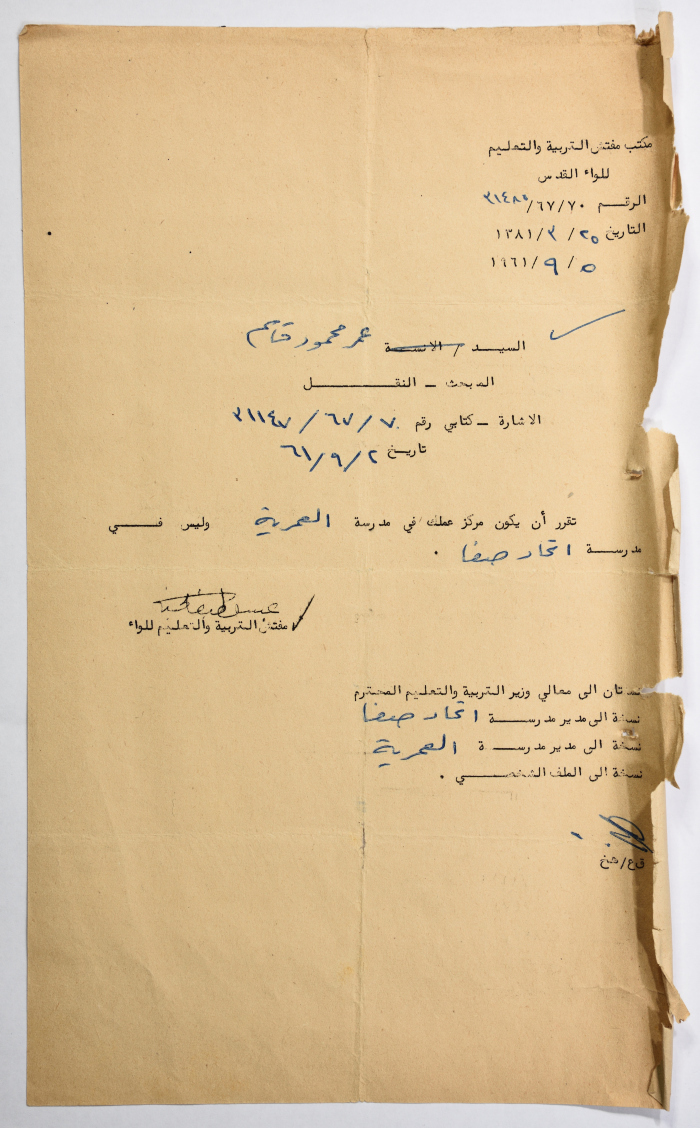 مكتب مفتش التربية والتعليم
للواء القدس
الرقم ٣١٤٨٥/٦٧/٧٠
التاريخ ٢٥ / ٣ / ١٣٨١
٥ / ٩ / ١٩٦١
السيد / الانسة عمر محمود قاسم
المبحث - النقل
الاشارة - كتابي رقم ٧٠ / ٦٧ / ٣١١٤٧
تاريخ ٢ / ٩ / ٦١
تقرر أن يكون مركز عملك في مدرسة العمرية وليس في
مدرسة اتحاد صفا .
مفتش التربية والتعليم للواء
نسختان الى معالي وزير التربية والتعليم المحترم
نسخة الى مدير مدرسة اتحاد صفا
نسخة الى مدير مدرسة العمرية
نسخة الى الملف الشخصي .